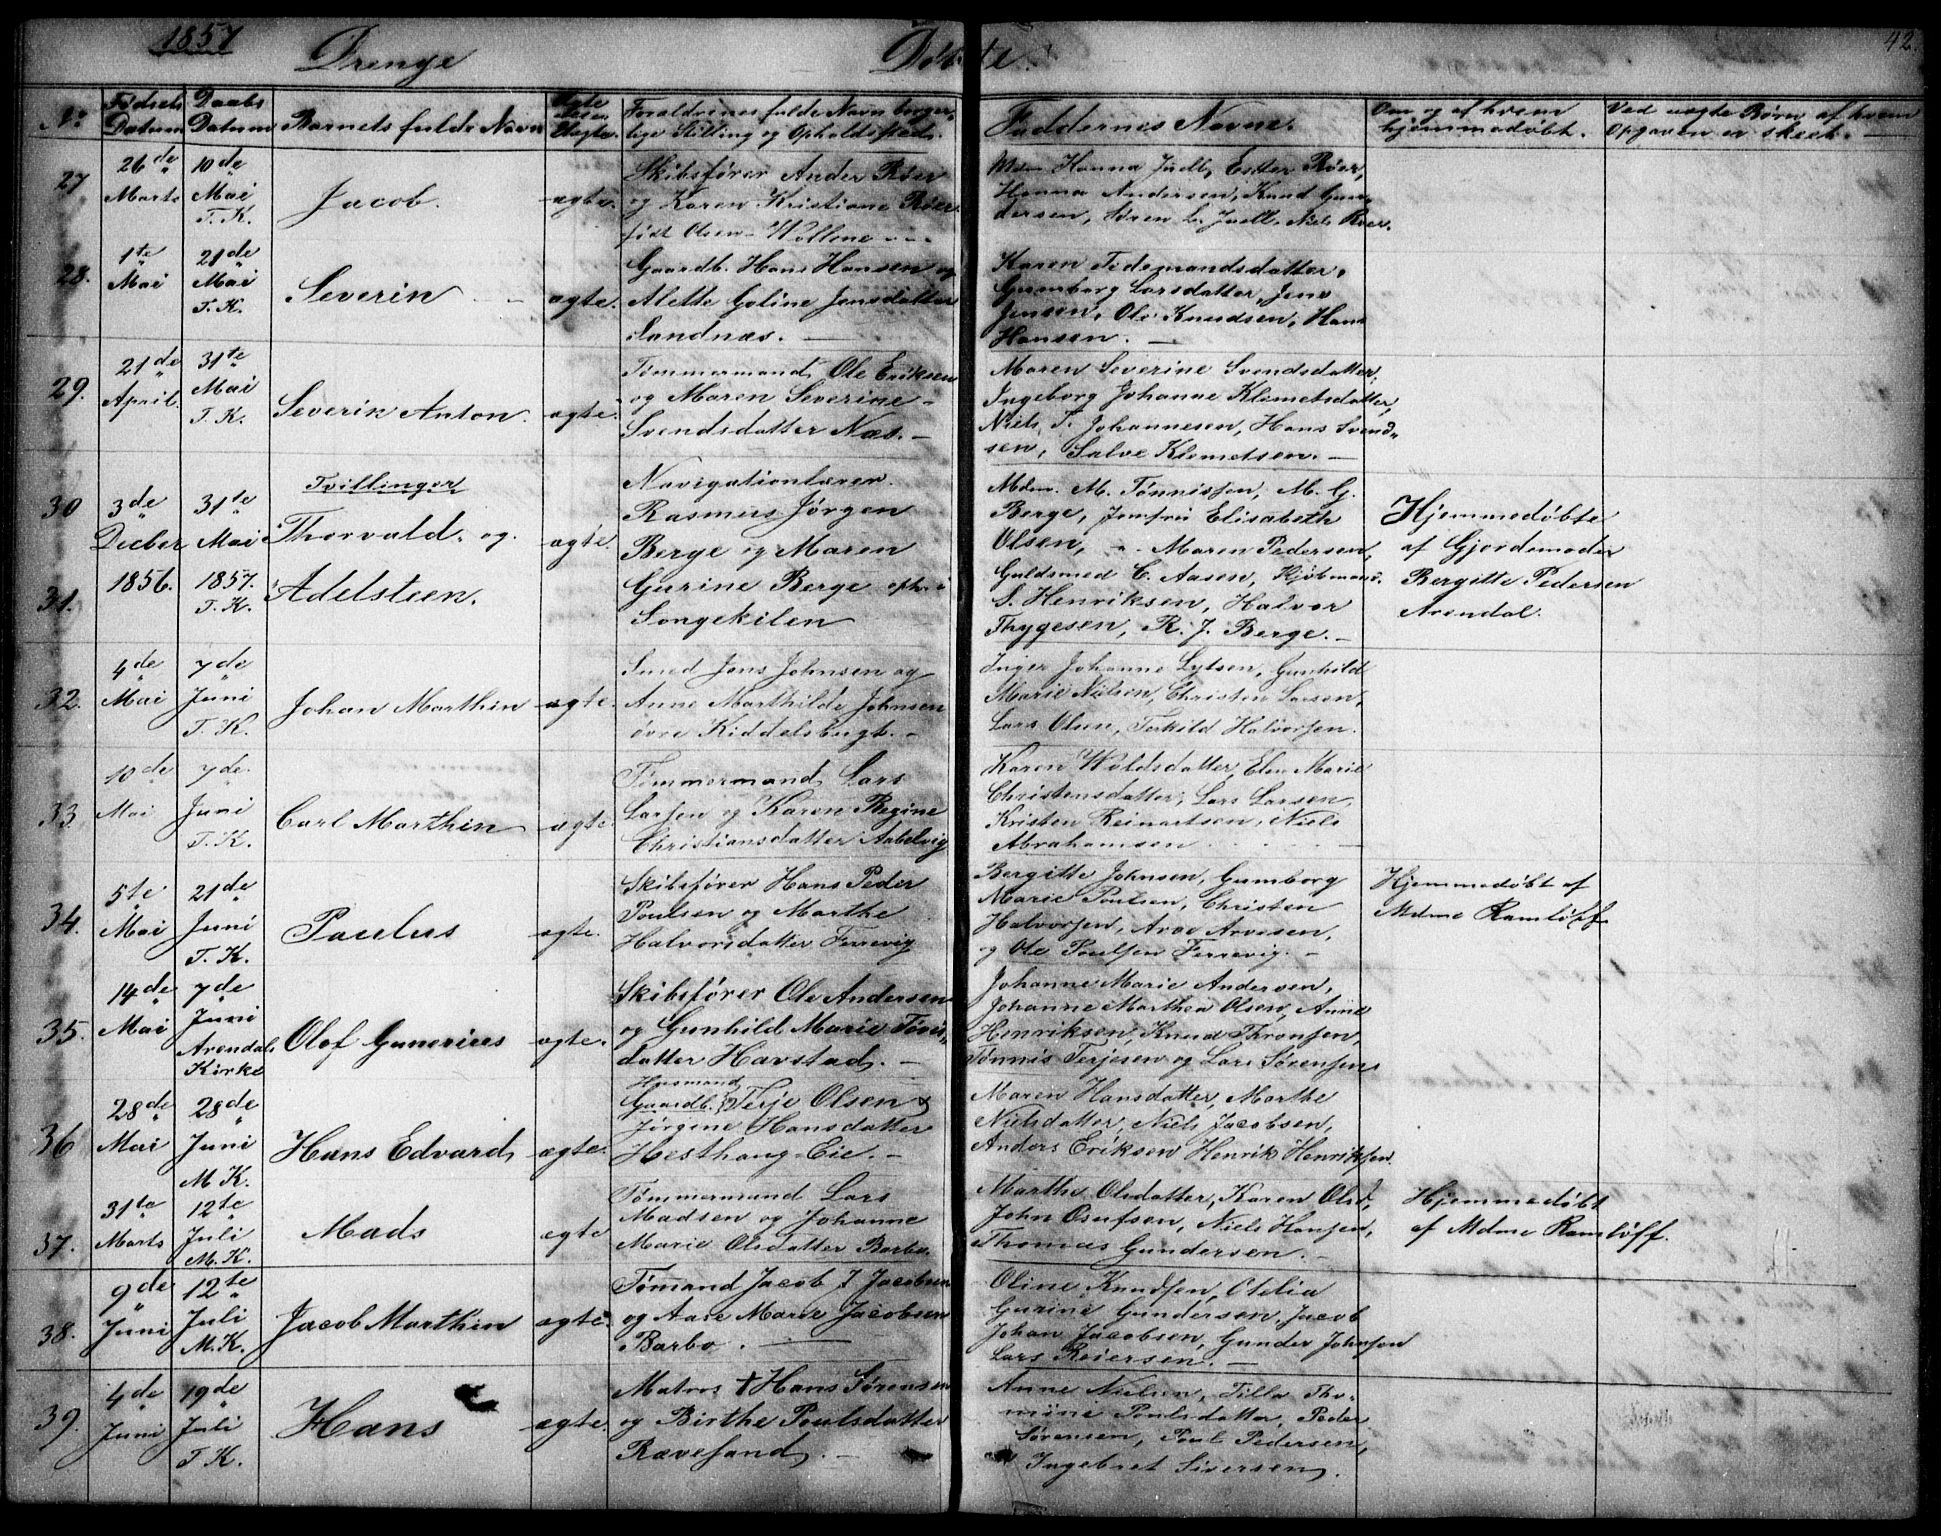 1857
Drenge
Døbte.
42.
No
Fødsels Datum
Daabs Datum
Barnets fulde Navn
Ægte eller Uægte.
Forældrenes fulde Navn borger-
lige Stilling og Opholdssted.
Faddernes Navne.
Om og af hvem
hjemmedøbt.
Ved uægte Børn af hvem
Opgaven er skeet.
27
26de Marts
10de Mai T. K.
Jacob.
ægte.
Skibsfører Ander Røer
og Karen Kristiane Røer
født Olsen
Mdm Hanna Juell, Ester Røer,
Hanna Andersen, Knud Gun-
dersen, Søren L. Juell, Niels Røer.
28.
1te Mai
21de Mai T. K.
Severin
ægte.
Gaardb. Hans Hansen og
Alette Goline Jensdatter
Sandnæs.
Karen Tidemandsdatter,
Gumborg Larsdatter, Jens
Jensen, Ole Knudsen, Hans
Hansen.
29.
21de April.
31te Mai T. K.
Severin Anton.
ægte.
Tømmermand Ole Eriksen
og Maren Severine
Svendsdatter Næs.
Maren Severine Svendsdatter,
Ingeborg Johanne Klemetsdatter,
Niels T. Johannesen, Hans Svend-
sen, Salve Klemetsen.
30
31.
3de Decber 1856.
31te Mai 1857. T. K.
Tvillinger
Thorvald og
Adelsteen.
ægte.
Navigationlærer
Rasmus Jørgen
Berge og Maren
Gurine Berge oph. i
Songekilen
Mdm. M. Tønnissen, M. G.
Berge, Jomfru Elisabeth
Olsen, - Maren Pedersen,
Guldsmed C. Aasen, Kjøbmand
S. Henriksen, Halvor
Thygesen, R. J. Berge.
Hjemmedøbte
af Gjordemoder
Bergitte Pedersen
Arendal.
32.
4de Mai
7de Juni T. K.
Johan Marthin
ægte.
Smed Jens Johnsen og
Anne Marthilde Johnsen
øvre Kiddelsbugt.
Inger Johanne Lytsen, Gunhild
Marie Nielsen, Christen Larsen,
Lars Olsen, Terkild Halvorsen.
33.
10de Mai
7de Juni T. K.
Carl Marthin
ægte.
Tømmermand Lars
Larsen og Karen Regine
Christiansdatter
Karen Woldsdatter, Elen Marie
Christensdatter, Lars Larsen,
Kristen Reinertsen, Niels
Abrahamsen
34.
5te Mai
21de Juni T. K.
Paulus
ægte.
Skibsfører Hans Peder
Poulsen og Marthe
Halvorsdatter Ferrevig
Bergitte Johnsen, Gumborg
Marie Poulsen, Christen
Halvorsen, Arve Arvesen,
og Ole Poulsen Ferrevig.
Hjemmedøbt af
Mdme Ramløff
35.
14de Mai
7de Juni Arendals Kirke
Olof Gunerius
ægte.
Skibsfører Ole Andersen
og Gunhild Marie
datter Havstad.
Johanne Marie Andersen,
Johanne Marthea Olsen, Anne
Henriksen, Knud Thronsen,
Tønnis Terjesen og Lars Sørensen
36
28de Mai
28de Juni M K.
Hans Edvard
ægte.
Huusmand
Gaardb. Terje Olsen &
Jørgine Hansdatter
Hesthaug Eie.
Maren Hansdatter, Marthe
Nielsdatter, Niels Jacobsen,
Anders Eriksen Henrik Henriksen.
37.
31te Marts
12te Juli M. K.
Mads
ægte
Tømmermand Lars
Madsen og Johanne
Marie Olsdatter Barbo.
Marthe Olsdatter, Karen Olsd,
John Osufsen, Niels Hansen,
Thomas Gundersen.
Hjemmedøbt
af Mdme Ramløff.
38.
9de Juni
12te Juli M. K.
Jacob Marthin
ægte.
Tømand Jacob J Jacobsen
og Aase Marie Jacobsen
Barbo.
Oline Knudsen, Otelia
Gurine Gundersen, Jacob
Johan Jacobsen, Gunder Johnsen
Lars Reiersen.
39.
4de Juni
19de Juli T K.
Hans
ægte.
Matros † Hans Sørensen
og Birthe Poulsdatter
Rævesand.
Anne Nielsen, Tilla Tho-
mine Poulsdatter, Peder
Sørensen, Poul Pedersen,
Ingebret Siversen.